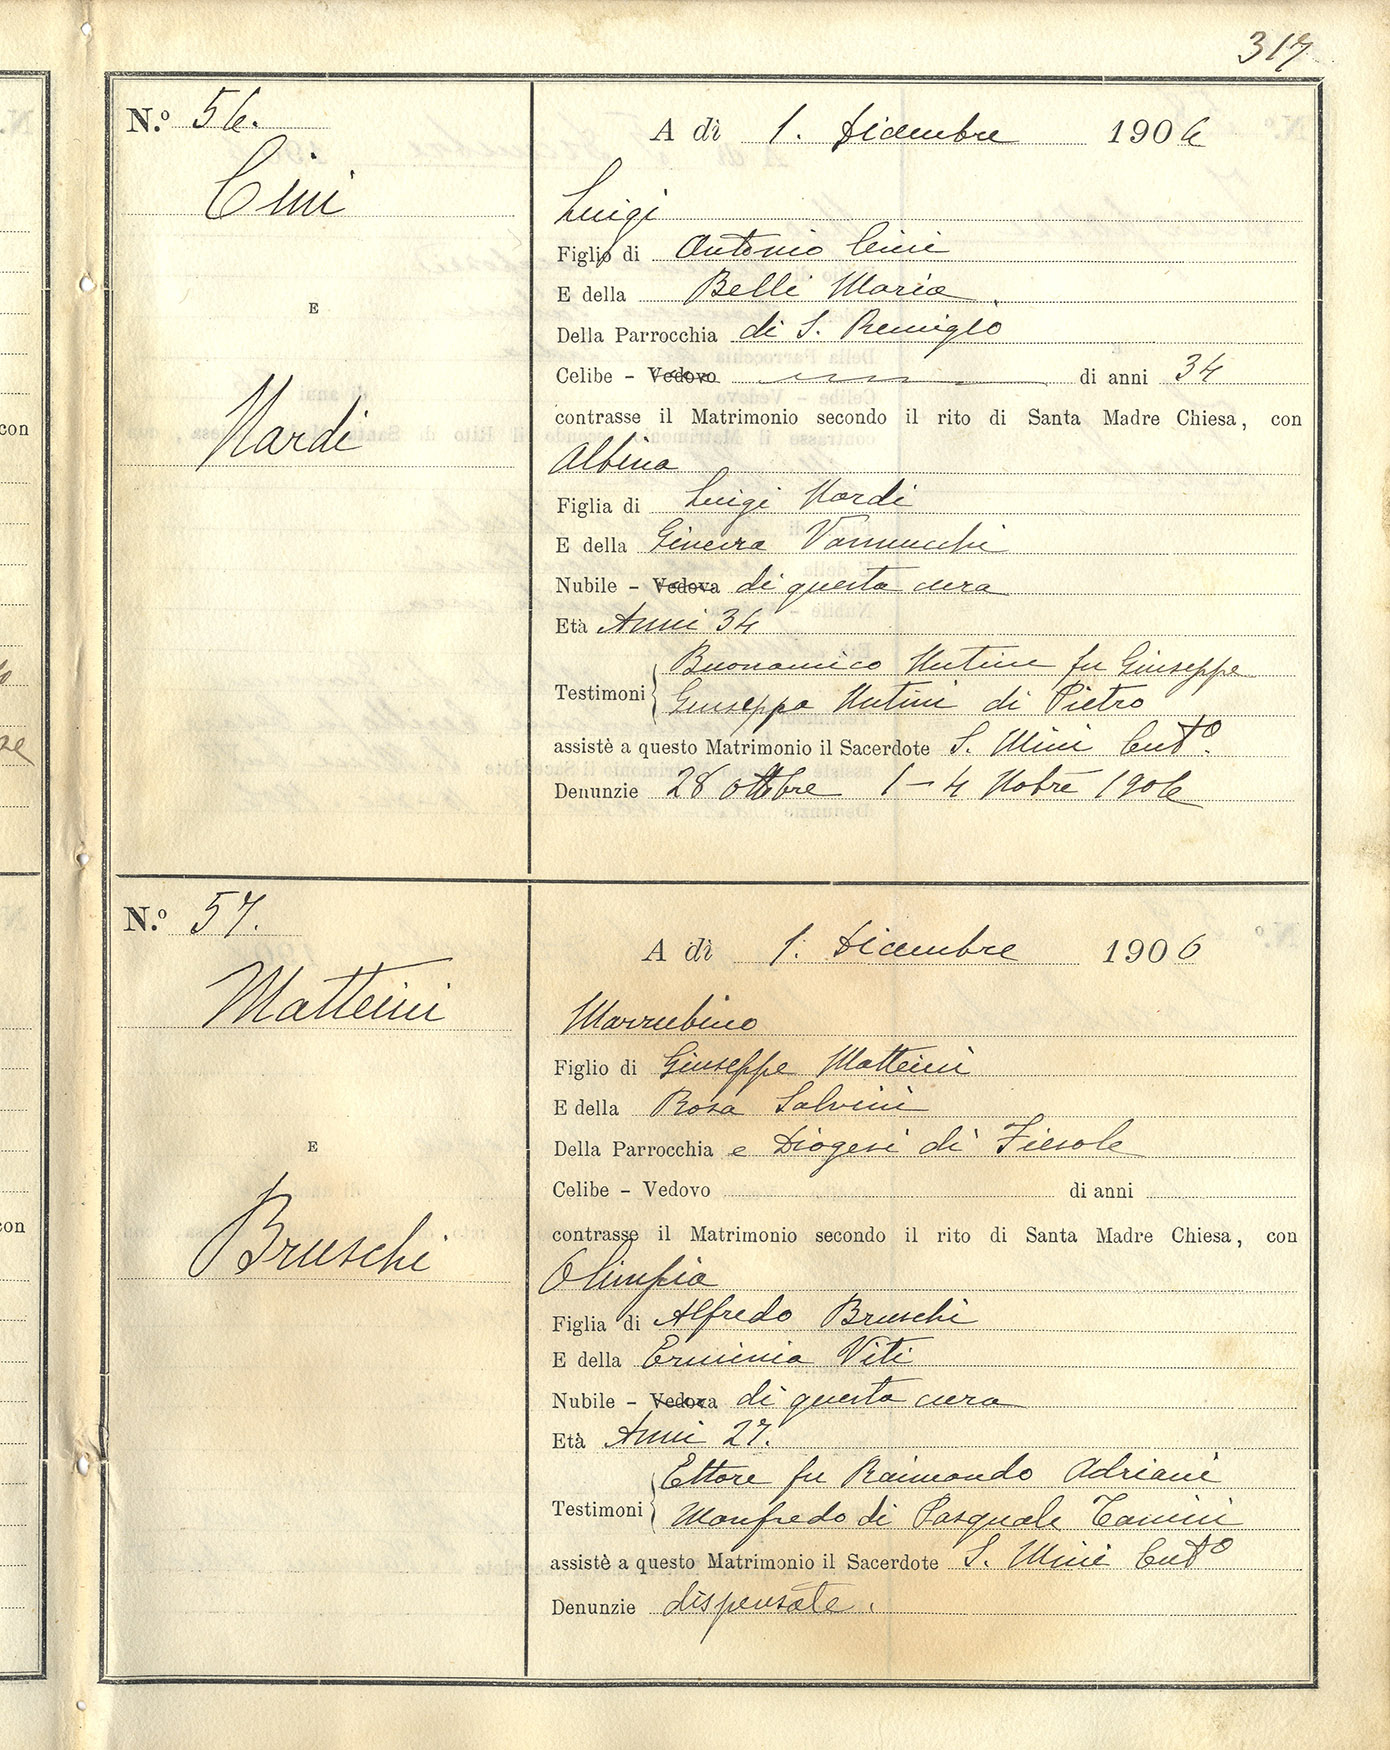 317
N.º 56.
Cini
E
Nardi
A dì 1. Dicembre 1906
Luigi
Figlio di Antonio Cini
E della Belli Maria
Della Parrocchia di S. Remigio
Celibe - Vedovo di anni 34
contrasse il Matrimonio secondo il rito di Santa Madre Chiesa, con
Albina
Figlia di Luigi Nardi
E della Ginevra Vannucchi
Nubile - Vedova di questa cura
Età Anni 34
Buonamico Nutini fu Giuseppe
Testimoni
Giuseppe Nutini di Pietro
assistè a questo Matrimonio il Sacerdote S. Mini Curto.
Denunzie 28 ottobre 1-4 Nobre 1906
N.º 57.
Matteini
E
Bruschi
A dì 1. Dicembre 1906
Marrubino
Figlio di Giuseppe Matteini
E della Rosa Salvini
Della Parrocchia e Diogesi di Fiesole
Celibe - Vedovo di anni
contrasse il Matrimonio secondo il rito di Santa Madre Chiesa, con
Olimpia
Figlia di Alfredo Bruschi
E della Erminia Viti
Nubile - Vedova di questa cura
Età Anni 27.
Ettore fu Raimondo Adriani
Testimoni
Manfredo di Pasquale Tanini
assistè a questo Matrimonio il Sacerdote S. Mini Curto
Denunzie dispensate.
con
con